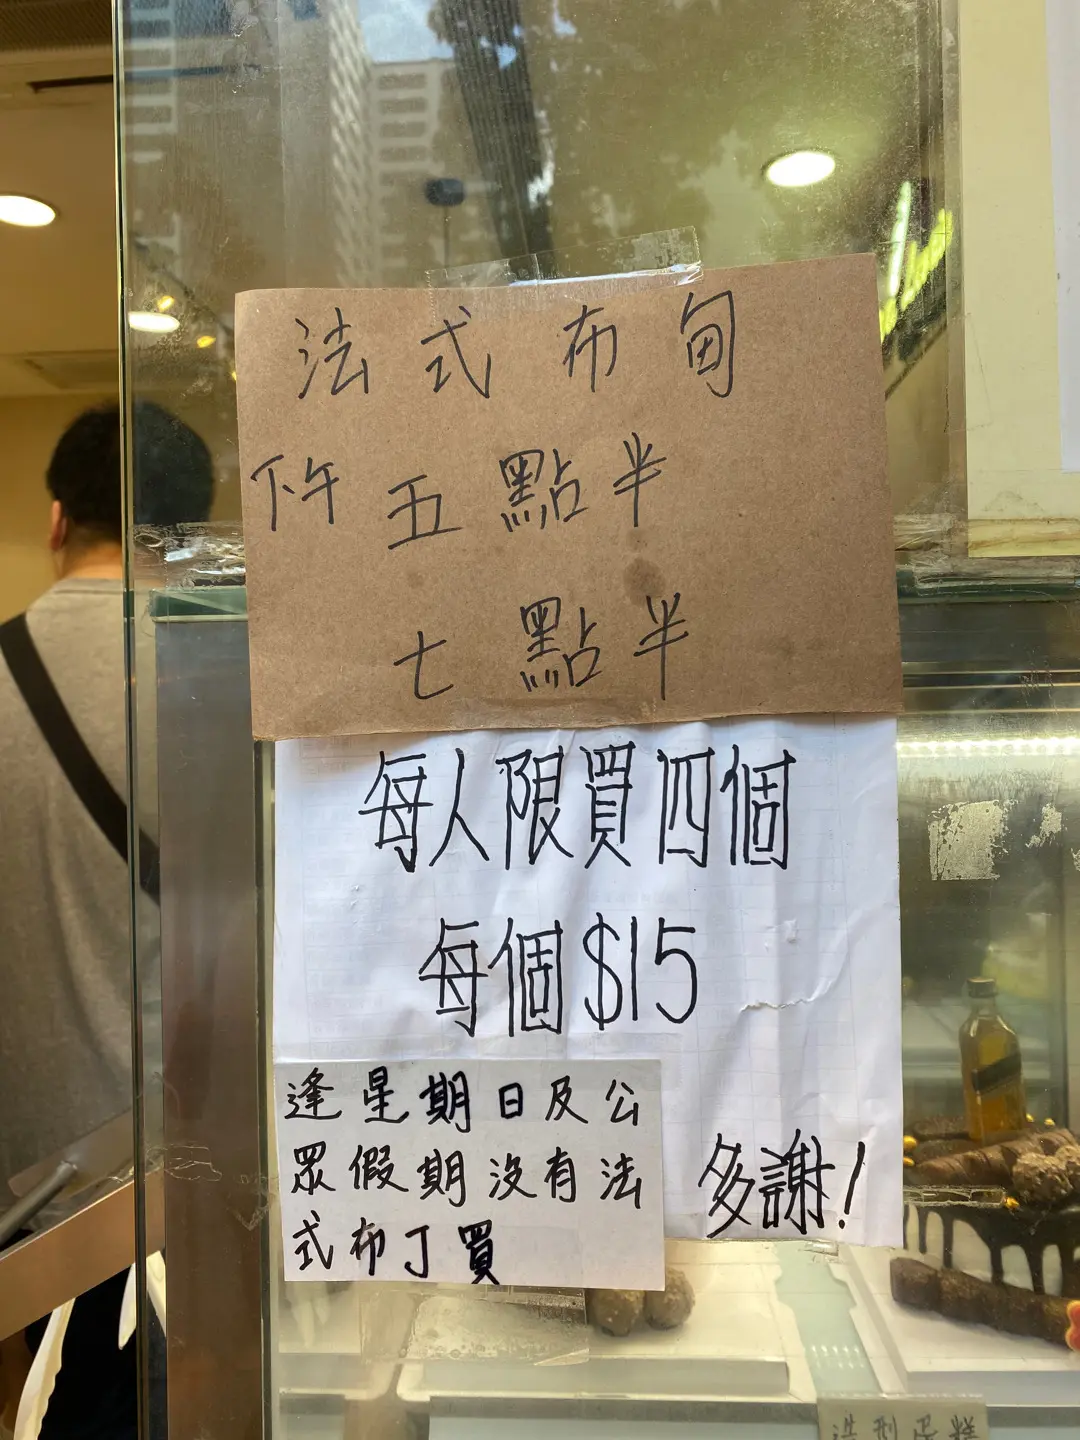 法式布甸
下午五點半
七點半
每人限買四個
每個$15
逢星期日及公
眾假期沒有法
式布丁買
多謝!
造型蛋糕